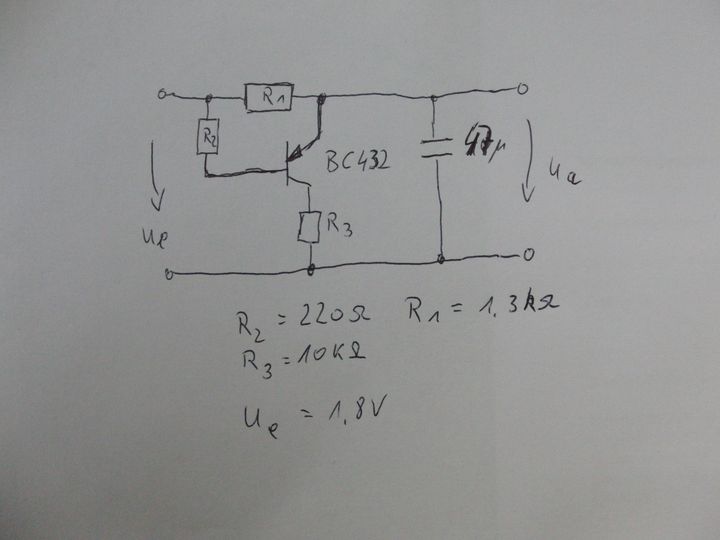 R1
R2
BC432
47µ
ua
ue
R3
R2 = 220Ω R1 = 1,3kΩ
R3 = 10KΩ
Ue = 1,8V